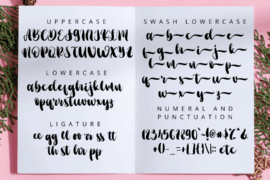 UPPERCASE
ABCDEFGHIJKLM
NOPQRSTUVWXYZ
LOWERCASE
abcdefghijklmn
opqrstuvwxyz
LIGATURE
ee gg ll oo rr ss tt
th st or pp
SWASH LOWERCASE
a-b-c-d-e-
f-g-h-i-j-k-
l-m-n-o-p-
q-r-s-t-u-
v-w-x-y-z-
NUMERAL AND
PUNCTUATION
1234567890
etc